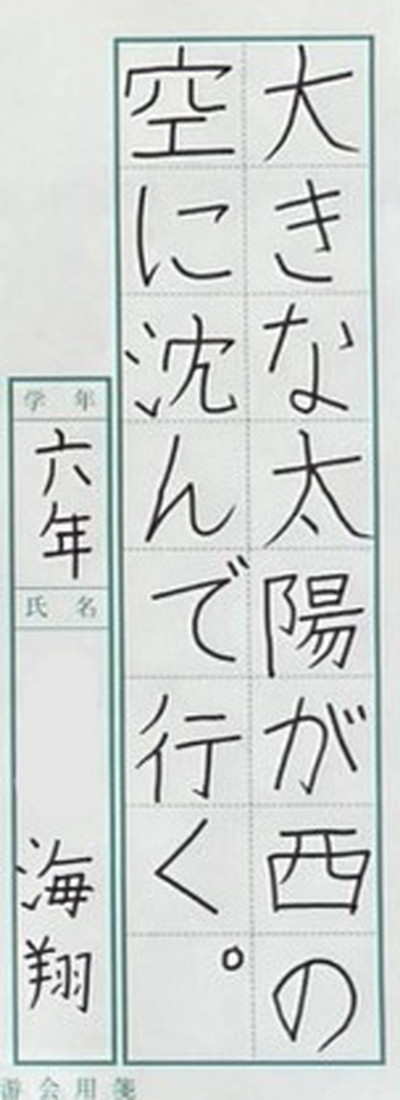 大きな太陽が西の
空に沈んで行く。
学年
六年
氏名
海翔
游会用箋